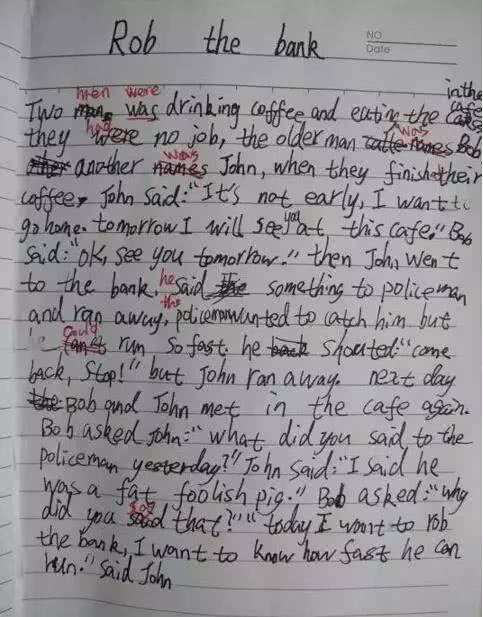 Rob the bank
NO
Date
men were in the
Two was drinking coffee and eating the cafe
had was
they were no job, the older man names Bob
was
another names John, when they finish their
coffee, John said: "It's not early, I want to
you
go home. tomorrow I will see at this cafe." Bob
said: "ok, see you tomorrow." then John went
he
to the bank, said something to policeman
the
and ran away, policeman wanted to catch him but
could
run so fast. he back shouted: "come
back, stop!" but John ran away. next day
the Bob and John met in the cafe again.
Bob asked John: "what did you said to the
policeman yesterday?" John said: "I said he
was a fat foolish pig." Bob asked: "why
say
did you said that?" "today I want to rob
the bank, I want to know how fast he can
run." said John